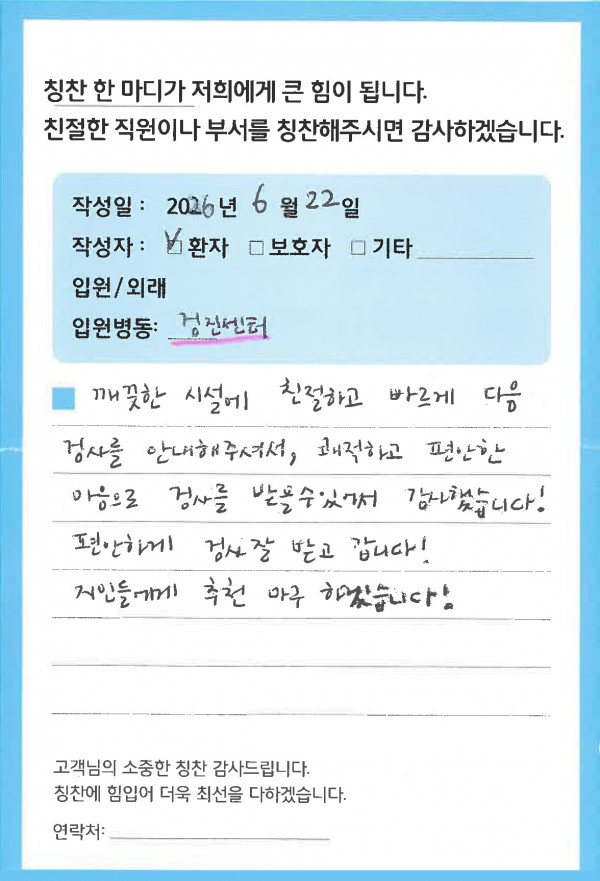 칭찬 한 마디가 저희에게 큰 힘이 됩니다.
친절한 직원이나 부서를 칭찬해주시면 감사하겠습니다.
작성일 : 2026년 6월 22일
작성자 : ☑환자 □보호자 □기타
입원/외래
입원병동: 검진센터
깨끗한 시설에 친절하고 빠르게 다음
검사를 안내해주셔서, 쾌적하고 편안한
마음으로 검사를 받을수있어서 감사했습니다!
편안하게 검사 잘 받고 갑니다!
지인들에게 추천 마구 하겠습니다!
고객님의 소중한 칭찬 감사드립니다.
칭찬에 힘입어 더욱 최선을 다하겠습니다.
연락처: